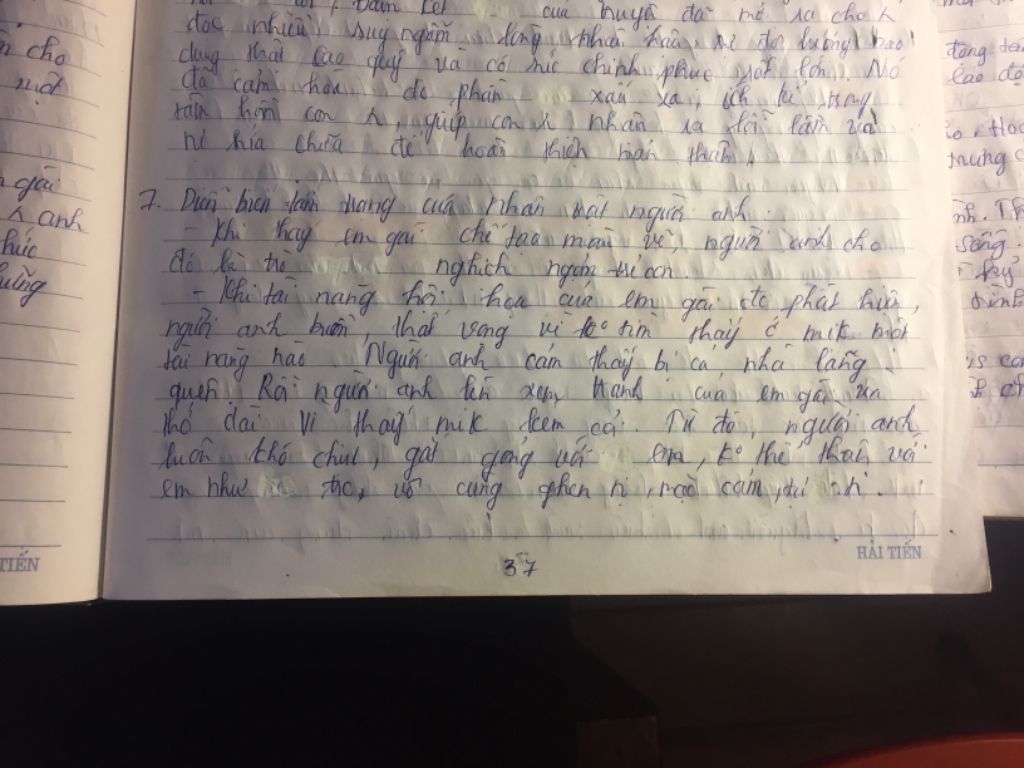 của truyện đã mở ra cho h
đọc nhiều suy ngẫm lòng nhân hậu, sự độ lượng bao
dung thật cao quý và có sức chinh phục rất lớn. Nó
đã cảm hóa đc phần xấu xa, ích kỉ trong
tâm hồn con h, giúp con h nhận ra lỗi lầm và
sửa chữa để hoàn thiện bản thân.
7. Diễn biến tâm trạng của nhân vật người anh
- Khi thấy em gái chế tạo màu vẽ, người anh cho
đó là trò nghịch ngợm trẻ con
- Khi tài năng hội họa của em gái đc phát hiện,
người anh buồn, thất vọng vì ko tìm thấy ở mik một
tài năng nào. Người anh cảm thấy bị cả nhà lãng
quên. Rồi người anh lén xem tranh của em gái và
thở dài vì thấy mik kém cỏi. Từ đó, người anh
luôn khó chịu, gắt gỏng với em, ko thể thân với
em như trc, vô cùng ghen tị, mặc cảm, tự ti.
37
HẢI TIẾN
n cho
một
n gái
h anh
húc
hững
TIẾN
động
lao độ
trung
sống